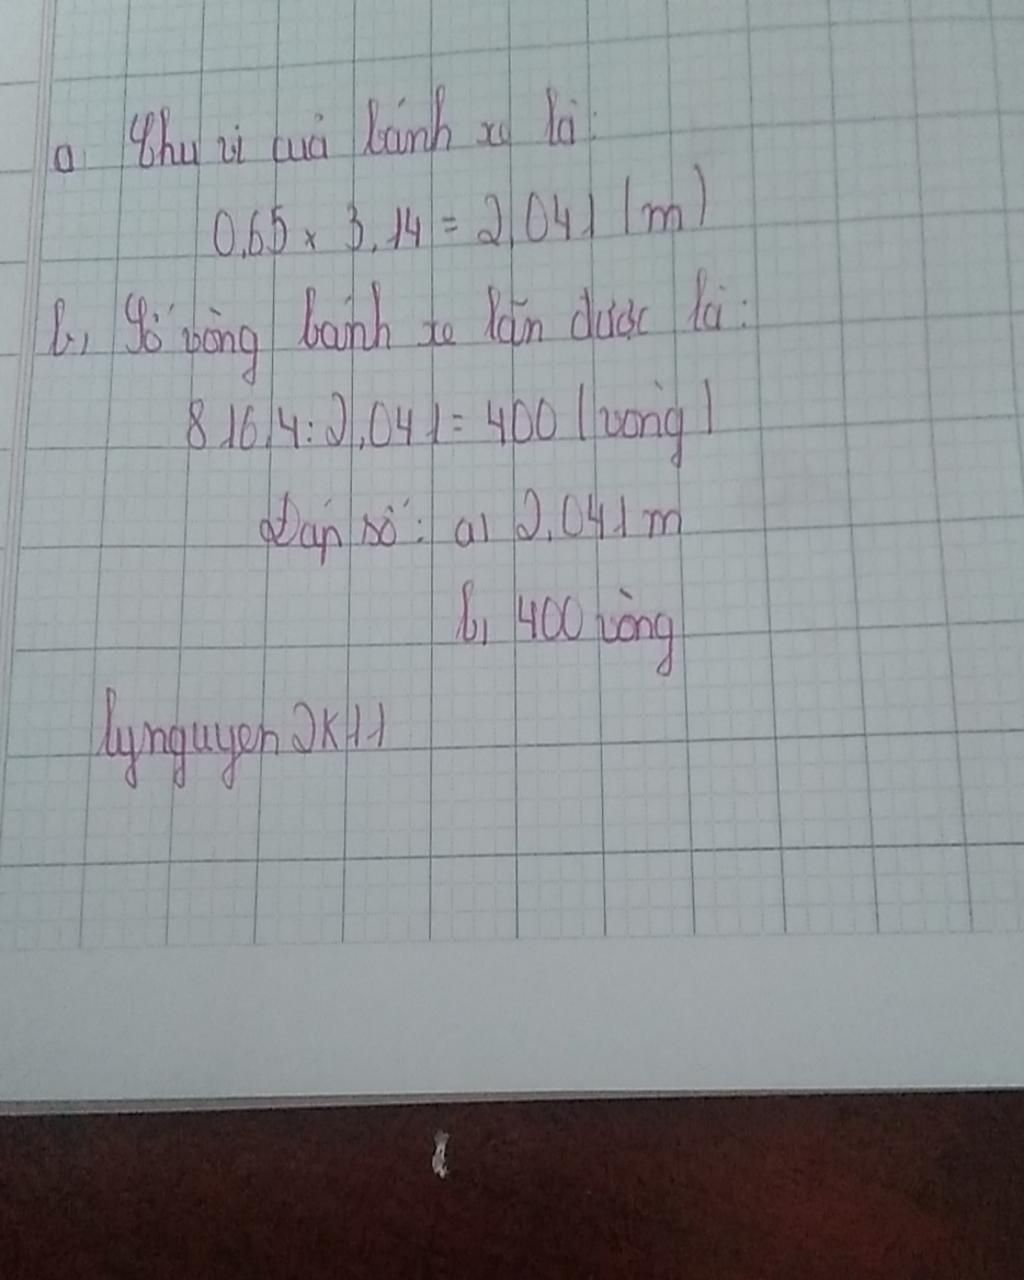 a, Chu vi của bánh xe là:
0,65 x 3,14 = 2,041 (m)
b, Số vòng bánh xe lăn được là:
816,4 : 2,041 = 400 (vòng)
Đáp số: a, 2,041 m
b, 400 vòng
lynguyen2k11